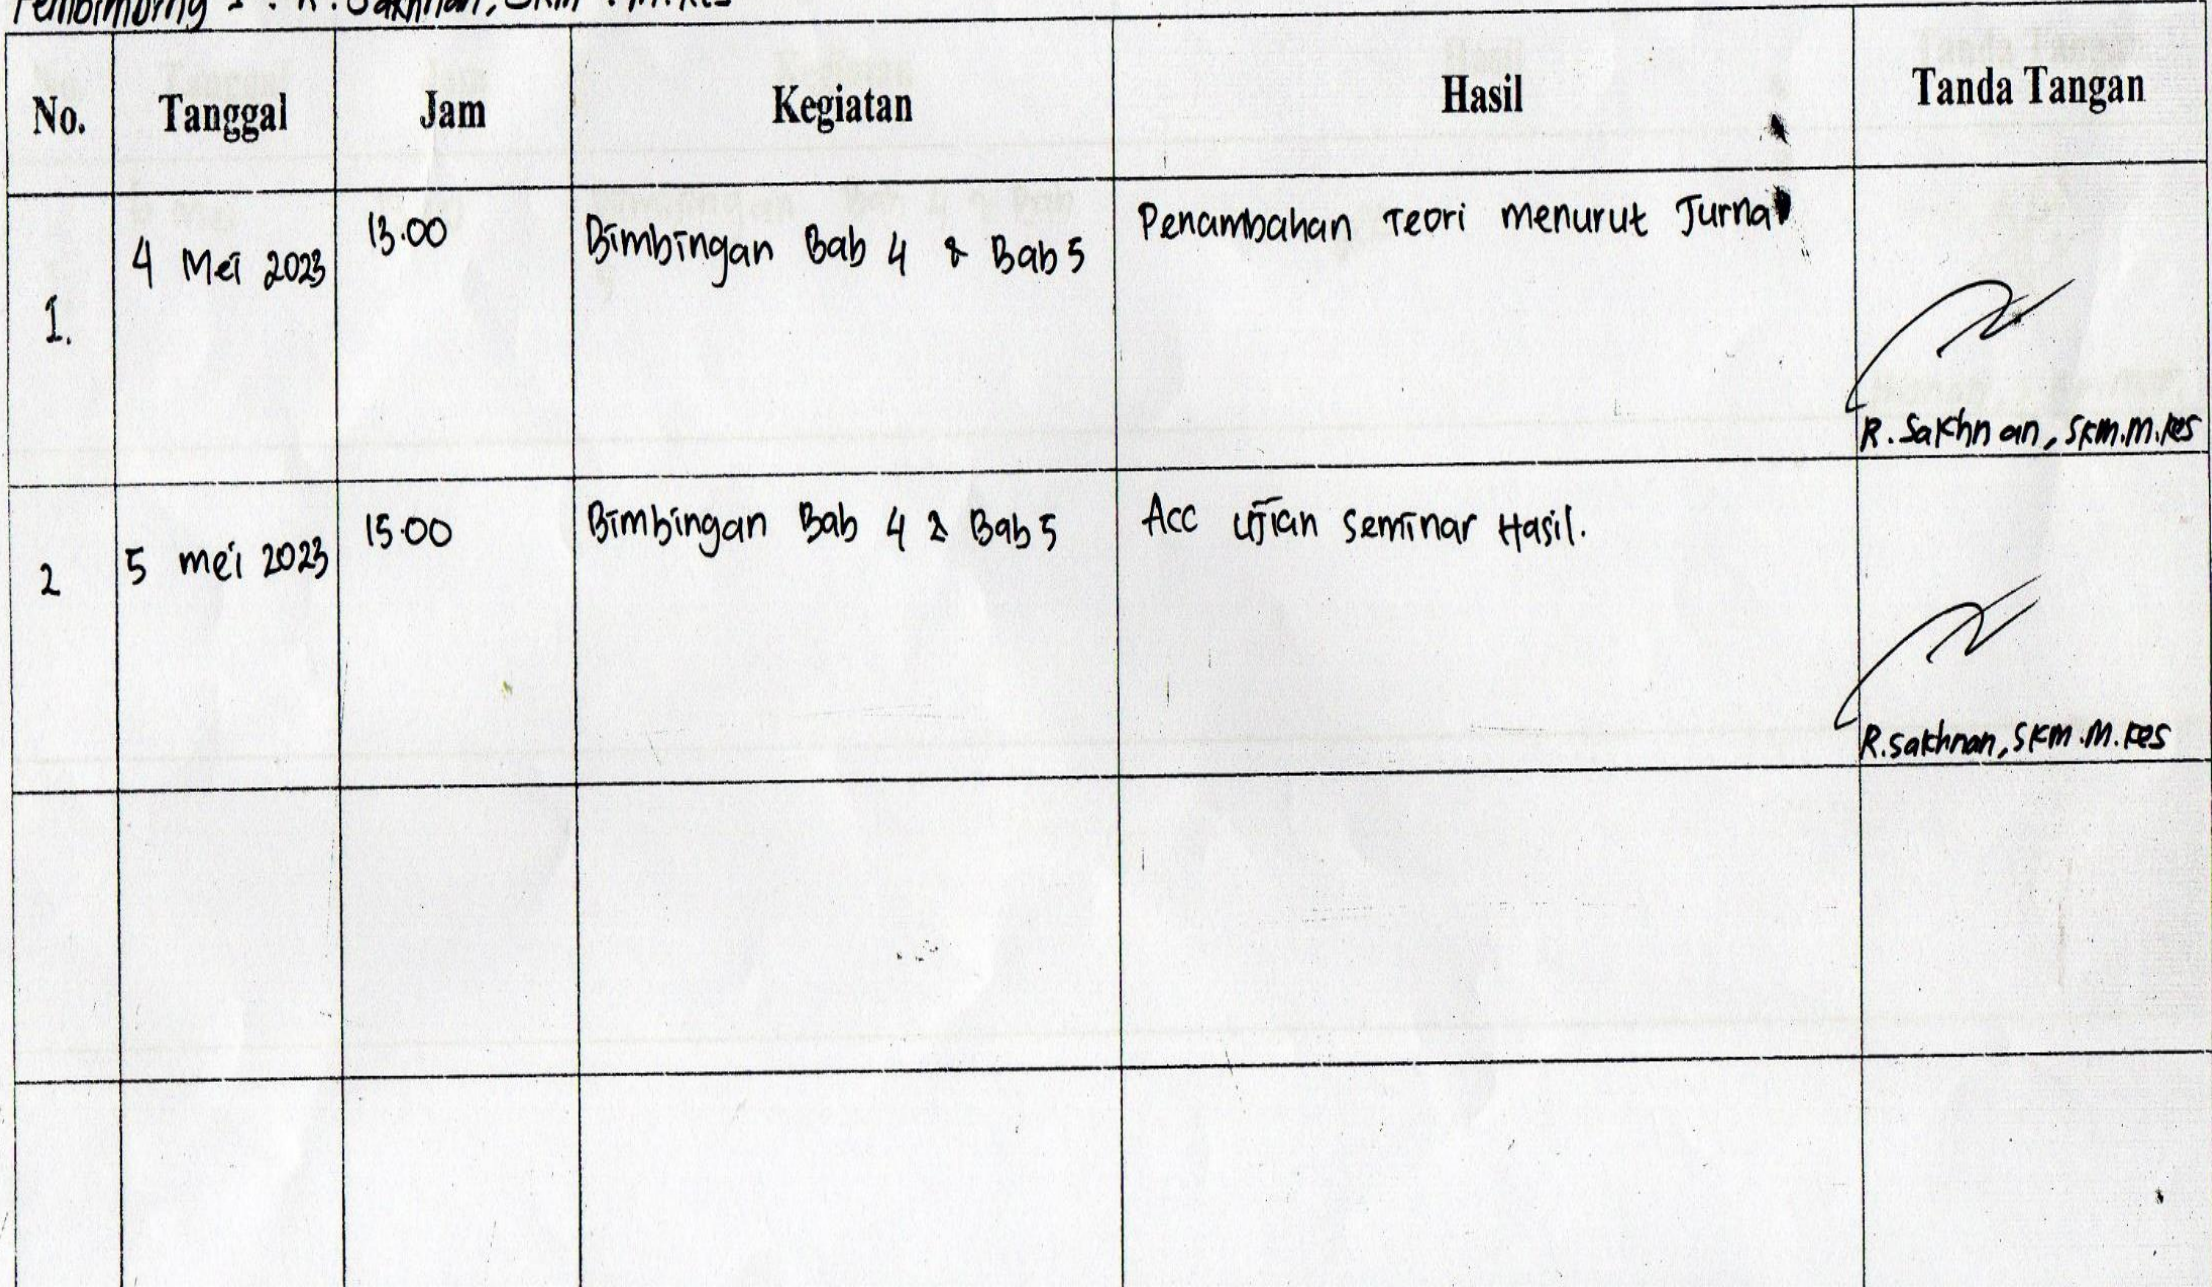 Pembimbing 1 : R. Sakhnan, SKM. M.Kes
No. Tanggal Jam Kegiatan Hasil Tanda Tangan
1. 4 Mei 2023 13.00 Bimbingan Bab 4 & Bab 5 Penambahan Teori menurut Jurnal
R. Sakhnan, SKM.M.Kes
2 5 mei 2023 15.00 Bimbingan Bab 4 & Bab 5 Acc Ujian Seminar Hasil.
R.sakhnan, SKM.M.Kes